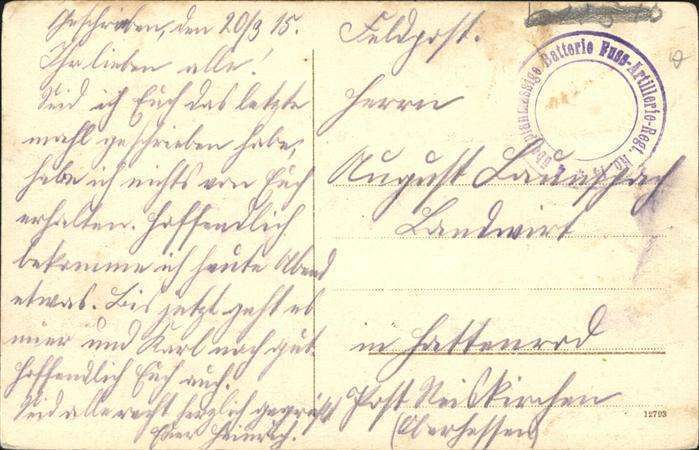 Geschrieben, den 20/3 15.
Ihr lieben alle!
Seid ich Euch das letzte
mahl geschrieben habe,
habe ich nichts von Euch
erhalten. Hoffendlich
bekomme ich heute Abend
etwas. Bis jetzt geht es
mier und Karl noch gut.
Hoffendlich Euch auch.
Seid alle recht herzlich gegrüßt
Euer Heinrich.
Feldpost.
Herrn
August Launspach
Landwirt
in Hattenrod
Post Reiskirchen
(Oberhessen)
Batterie Fuss-Artillerie-Regt. No.
12793